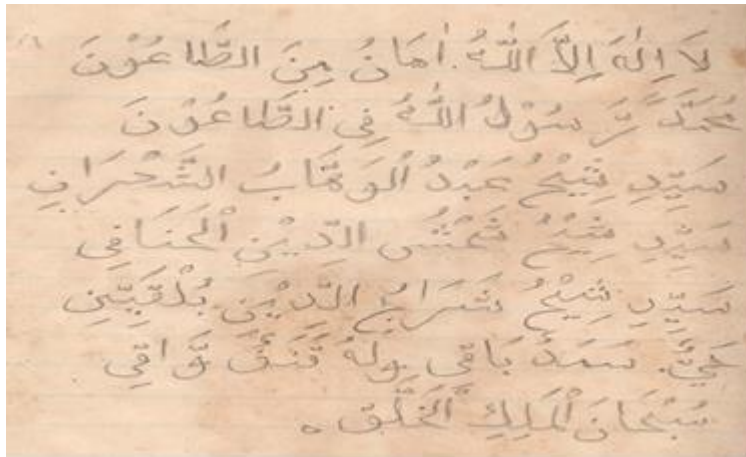 لَا اِلٰهَ اِلَّا اللّٰهُ. اٰمَانُ مِنَ الطَّاعُوْنَ
مُحَمَّدٌ رَّسُوْلُ اللّٰهُ فِى الطَّاعُوْنَ
سَيِّدِ شَيْخُ عَبْدُ الْوَهَّابُ الشَّعْرَانِ
سَيِّدِ شَيْخُ شَمْسُ الدِّيْنِ الْحَنَافِى
سَيِّدِ شَيْخُ سَرَاجُ الدِّيْنِ بُلْقِيْنِ
حَيٌّ. صَمَدٌ بَاقِى وَلَهُ كَنَفٌ وَّاقِى
سُبْحَانَ الْمَلِكِ الْخَلَّقِ